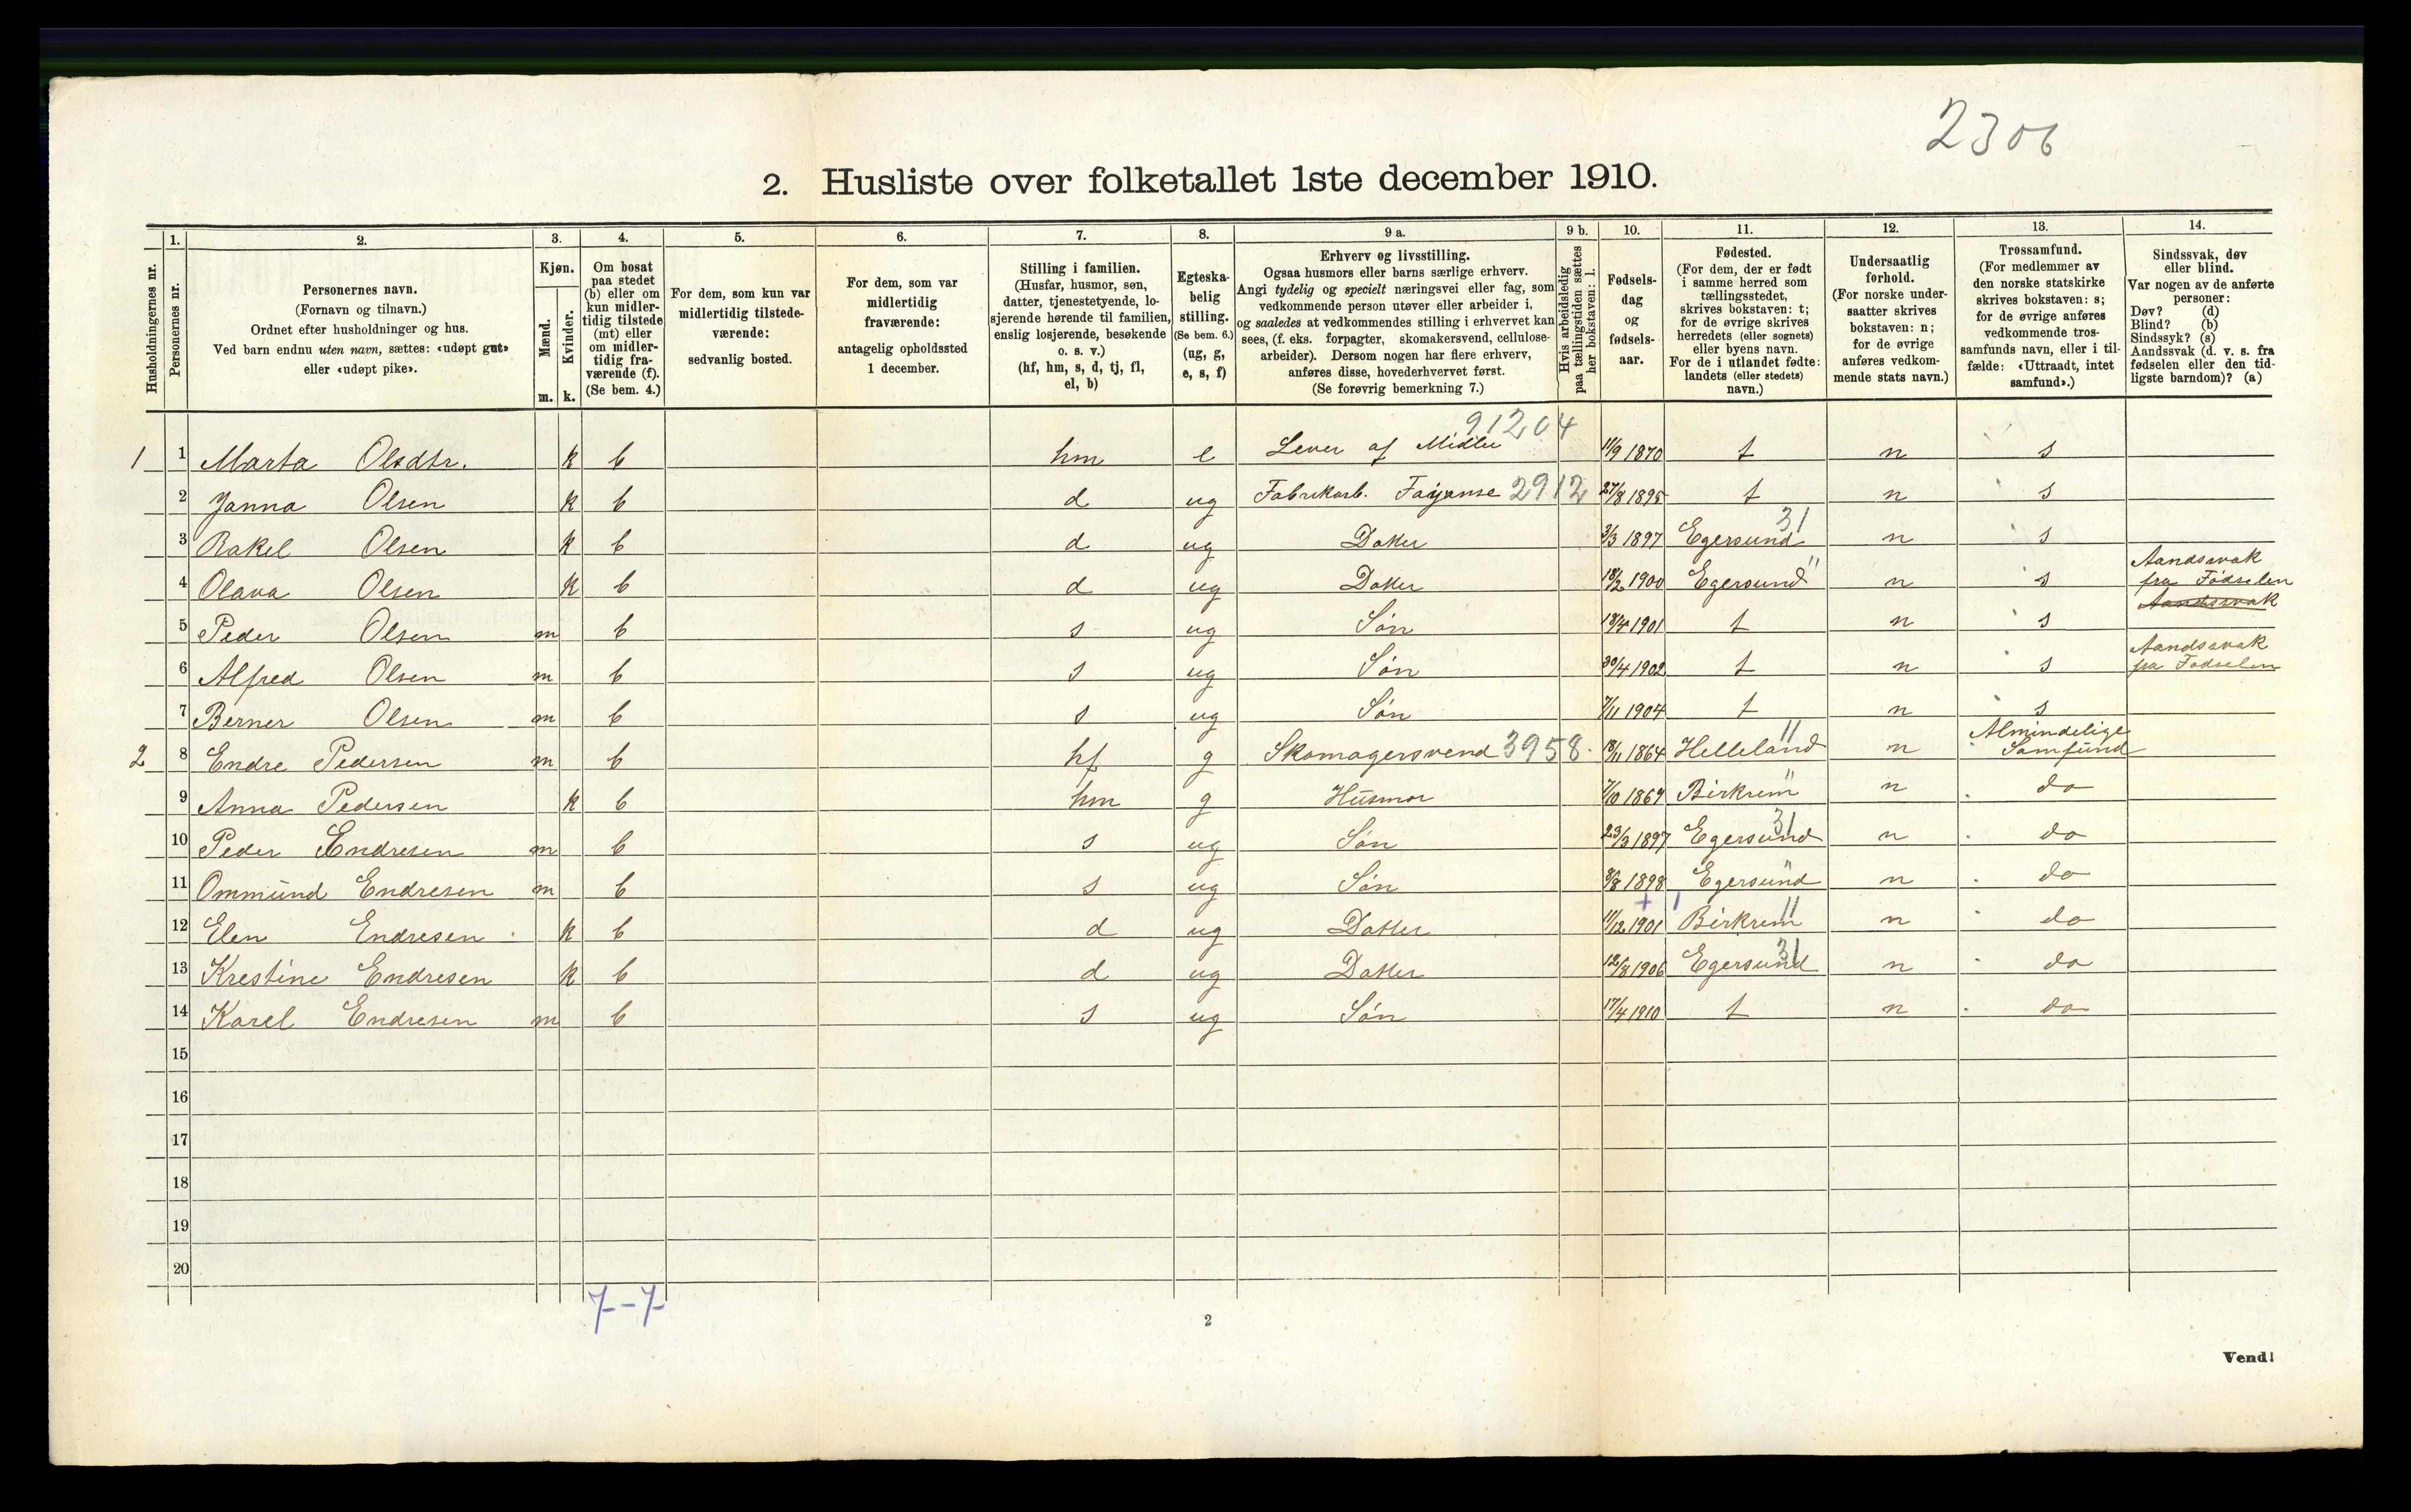 2306
2. Husliste over folketallet 1ste december 1910.
Husholdningernes nr.
1. Personernes nr.
2. Personernes navn. (Fornavn og tilnavn.) Ordnet efter husholdninger og hus. Ved barn endnu uten navn, sættes: «udøpt gut» eller «udøpt pike».
3. Kjøn. Mænd. m. Kvinder. k.
4. Om bosat paa stedet (b) eller om kun midlertidig tilstede (mt) eller om midlertidig fraværende (f). (Se bem. 4.)
5. For dem, som kun var midlertidig tilstedeværende: sedvanlig bosted.
6. For dem, som var midlertidig fraværende: antagelig opholdssted 1 december.
7. Stilling i familien. (Husfar, husmor, søn, datter, tjenestetyende, losjerende hørende til familien, enslig losjerende, besøkende o. s. v.) (hf, hm, s, d, tj, fl, el, b)
8. Egteskabelig stilling. (Se bem. 6.) (ug, g, e, s, f)
9 a. Erhverv og livsstilling. Ogsaa husmors eller barns særlige erhverv. Angi tydelig og specielt næringsvei eller fag, som vedkommende person utøver eller arbeider i, og saaledes at vedkommendes stilling i erhvervet kan sees, (f. eks. forpagter, skomakersvend, cellulosearbeider). Dersom nogen har flere erhverv, anføres disse, hovederhvervet først. (Se forøvrig bemerkning 7.)
9 b. Hvis arbeidsledig paa tællingstiden sættes her bokstaven: l.
10. Fødselsdag og fødselsaar.
11. Fødested. (For dem, der er født i samme herred som tællingsstedet, skrives bokstaven: t; for de øvrige skrives herredets (eller sognets) eller byens navn. For de i utlandet fødte: landets (eller stedets) navn.)
12. Undersaatlig forhold. (For norske undersaatter skrives bokstaven: n; for de øvrige anføres vedkommende stats navn.)
13. Trossamfund. (For medlemmer av den norske statskirke skrives bokstaven: s; for de øvrige anføres vedkommende trossamfunds navn, eller i tilfælde: «Uttraadt, intet samfund».)
14. Sindssvak, døv eller blind. Var nogen av de anførte personer: Døv? (d) Blind? (b) Sindssyk? (s) Aandssvak (d. v. s. fra fødselen eller den tidligste barndom)? (a)
91204
1 1 Marta Olsdtr. k b hm e Lever af Midler 11/9 1870 t n s
2 Janna Olsen k b d ug Fabrikarb. Fajanse 2912 27/8 1895 t n s
3 Rakel Olsen k b d ug Datter 3/3 1897 Egersund 31 n s
4 Olava Olsen k b d ug Datter 18/2 1900 Egersund " n s Aandssvak fra Fødselen
5 Peder Olsen m b s ug Søn 18/4 1901 t n s Aandssvak
6 Alfred Olsen m b s ug Søn 30/4 1902 t n s Aandssvak fra Fødselen
7 Berner Olsen m b s ug Søn 7/11 1904 t n s
2 8 Endre Pedersen m b hf g Skomagersvend 3958 18/11 1864 Helleland " n Almindelige Samfund
9 Anna Pedersen k b hm g Husmor 7/10 1869 Birkrem " n do
10 Peder Endresen m b s ug Søn 23/3 1897 Egersund 31 n do
11 Ommund Endresen m b s ug Søn 8/8 1898 Egersund " n do
12 Elen Endresen k b d ug Datter 11/12 1901 Birkrem " n do
13 Krestine Endresen k b d ug Datter 12/8 1906 Egersund 31 n do
14 Karel Endresen m b s ug Søn 17/4 1910 t n do
15
16
17
18
19
20
7-7
2
Vend!